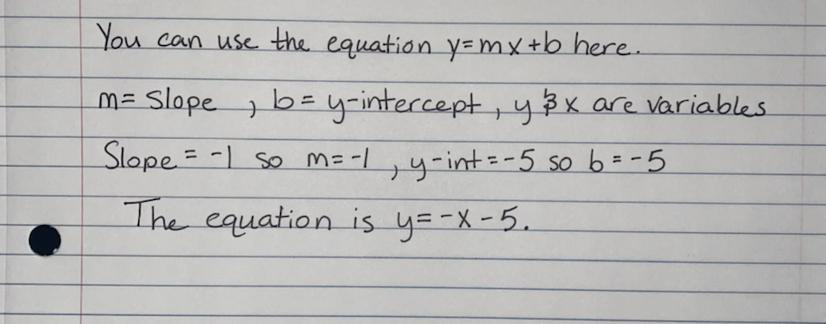 You can use the equation y=mx+b here.
m= Slope , b= y-intercept, y & x are variables
Slope = -1 so m=-1, y-int=-5 so b=-5
The equation is y=-x-5.